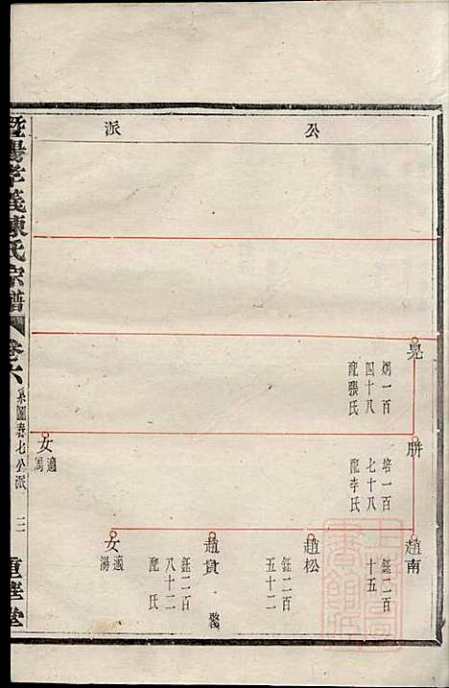 公派
晃
炳一百
四十八
配張氏
胼
培一百
七十八
配李氏
女
適
馮
趙南
鈺二百
十五
趙松
鈺二百
五十二
趙貴
鈺二百
八十二
配氏
女
適
湯
暨陽孝義陳氏宗譜
卷六
系圖春七公派
二
重慶堂